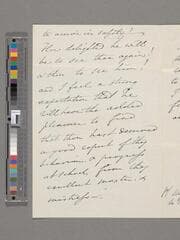 to arrive in safety!
How delighted he will
be to see thee again!
& thee to see
and I feel a strong
expectation that he
will have the added
pleasure to find
that thou hast deserved
a good report of thy
behaviour & progress
at school, from thy
excellent master &
mistress —